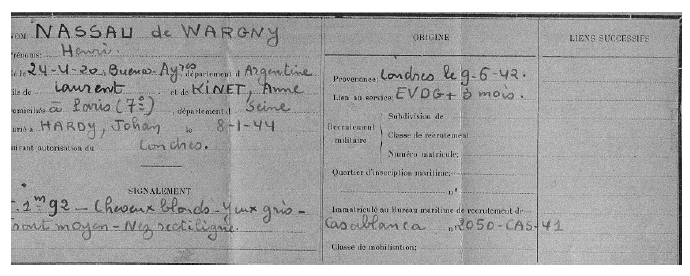 NOM: NASSAU de WARGNY
Prénoms: Henri.
24-4-20, Buenos-Ayres département d Argentine
fils de Laurent et de KINET, Anne
domiciliés à Paris (7e), département d Seine
marié à HARDY, Johan le 8-1-44
suivant autorisation du Londres.
SIGNALEMENT
1m92 - Cheveux blonds - Yeux gris -
Front moyen - Nez rectiligne.
ORIGINE
Provenance: Londres le 9-6-42.
Lien au service: EVDG + 3 mois.
Recrutement militaire
Subdivision de
Classe de recrutement
Numéro matricule:
Quartier d'inscription maritime:
n°
Immatriculé au Bureau maritime de recrutement de
Casablanca n° 2050-CAS-41
Classe de mobilisation:
LIENS SUCCESSIFS